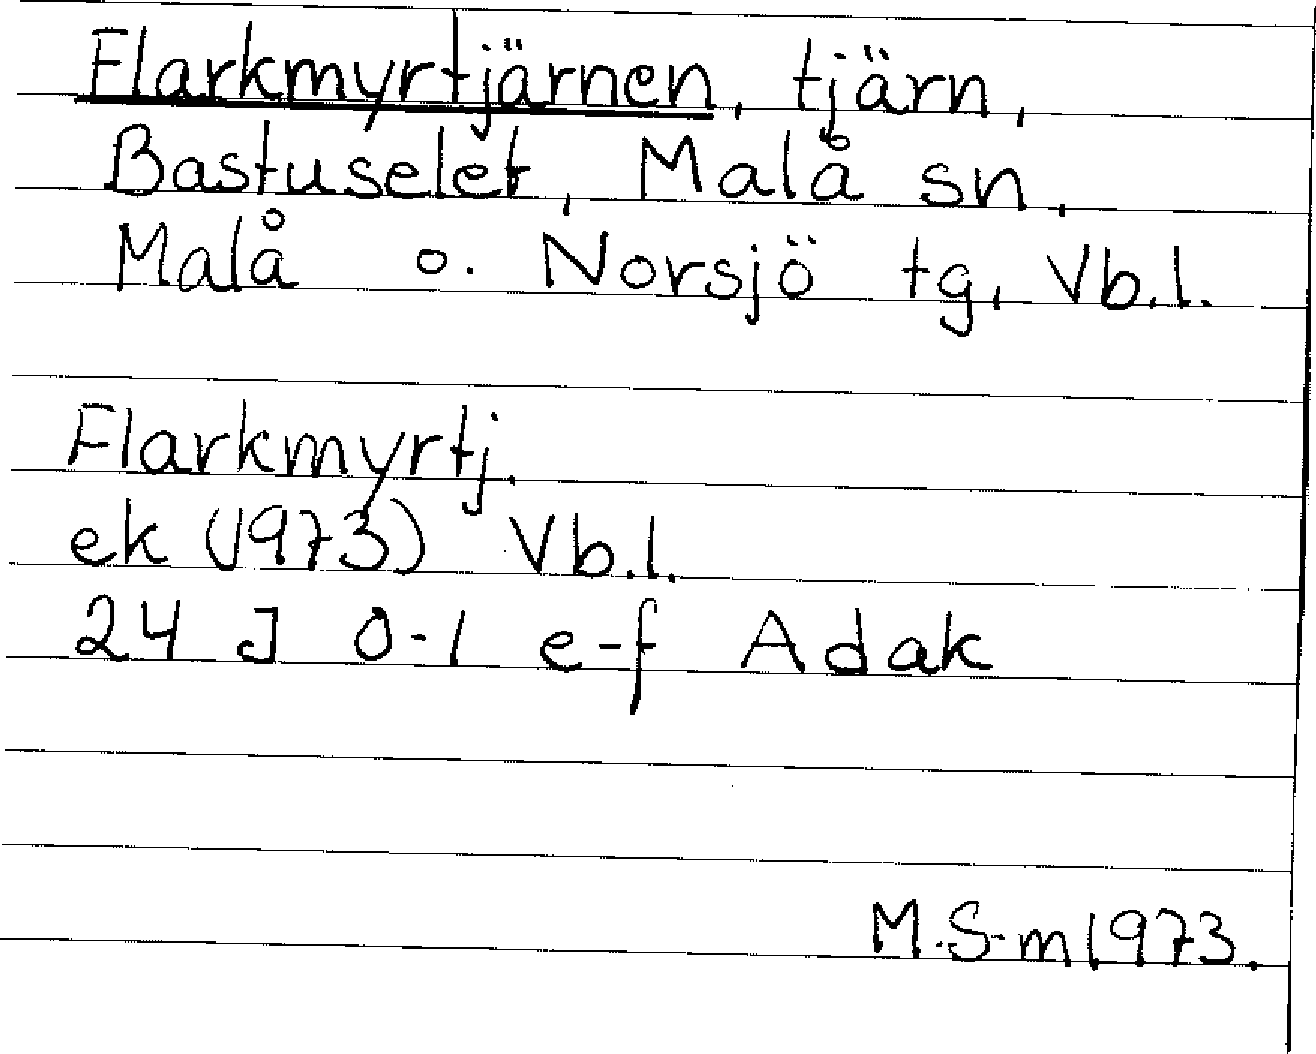 Flarkmyrtjärnen, tjärn,
Bastuselet, Malå sn,
Malå o. Norsjö tg, Vb.l.
Flarkmyrtj.
ek (1973) Vb.l.
24 J 0-1 e-f Adak
M.S-m 1973.